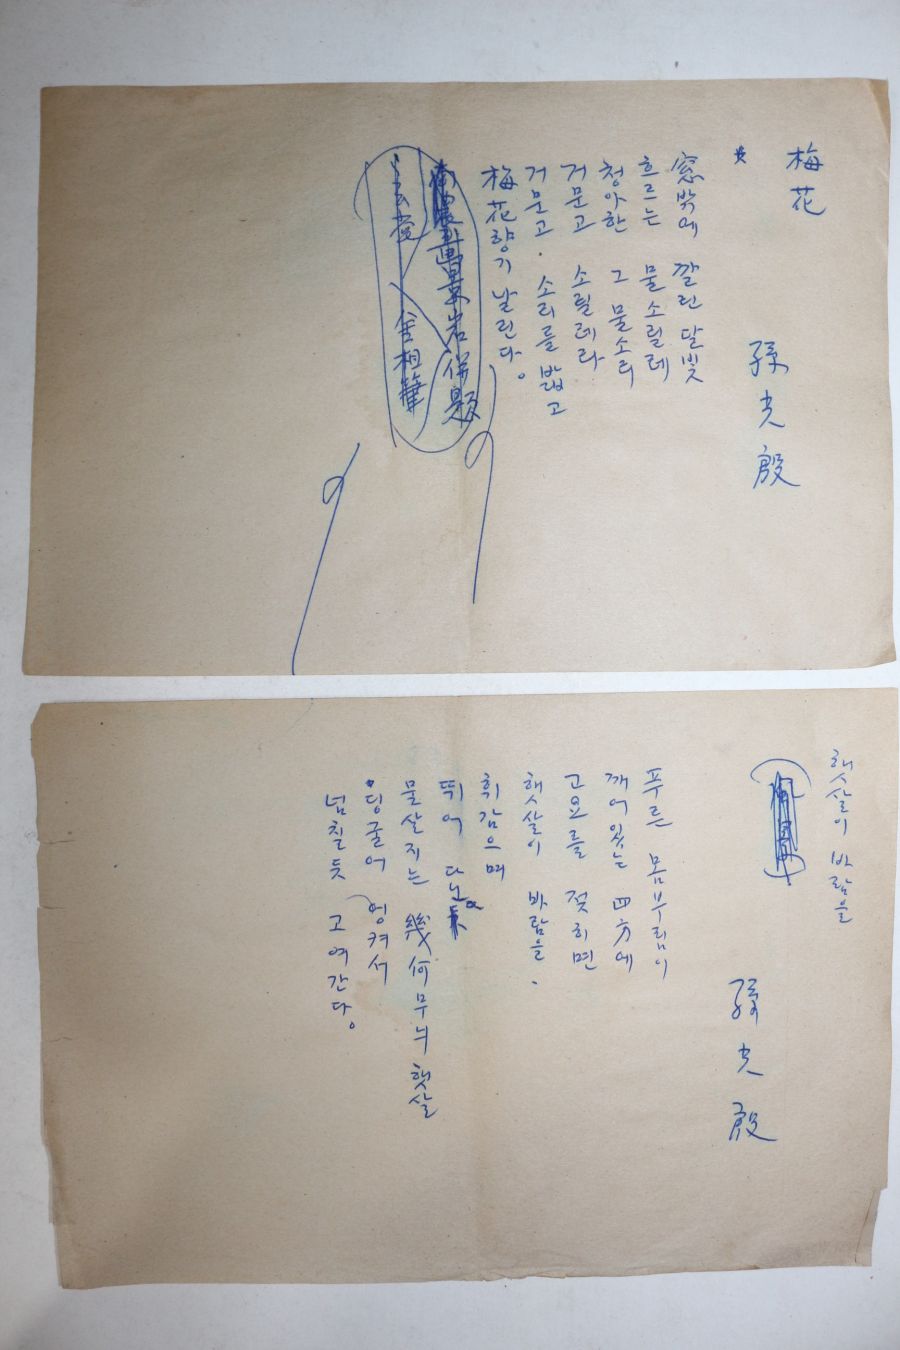 梅花
孫光殷
窓밖에 깔린 달빛
흐르는 물소릴레
청아한 그 물소리
거문고 소릴레라
거문고 소리를 밟고
梅花향기 날린다。
햇살이 바람을
孫光殷
푸른 몸부림이
깨어있는 四方에
고요를 젖히면
햇살이 바람을.
휘감으며
뛰어
물살지는 幾何무늬 햇살
딩굴어 엉켜서
넘칠듯 고여간다。